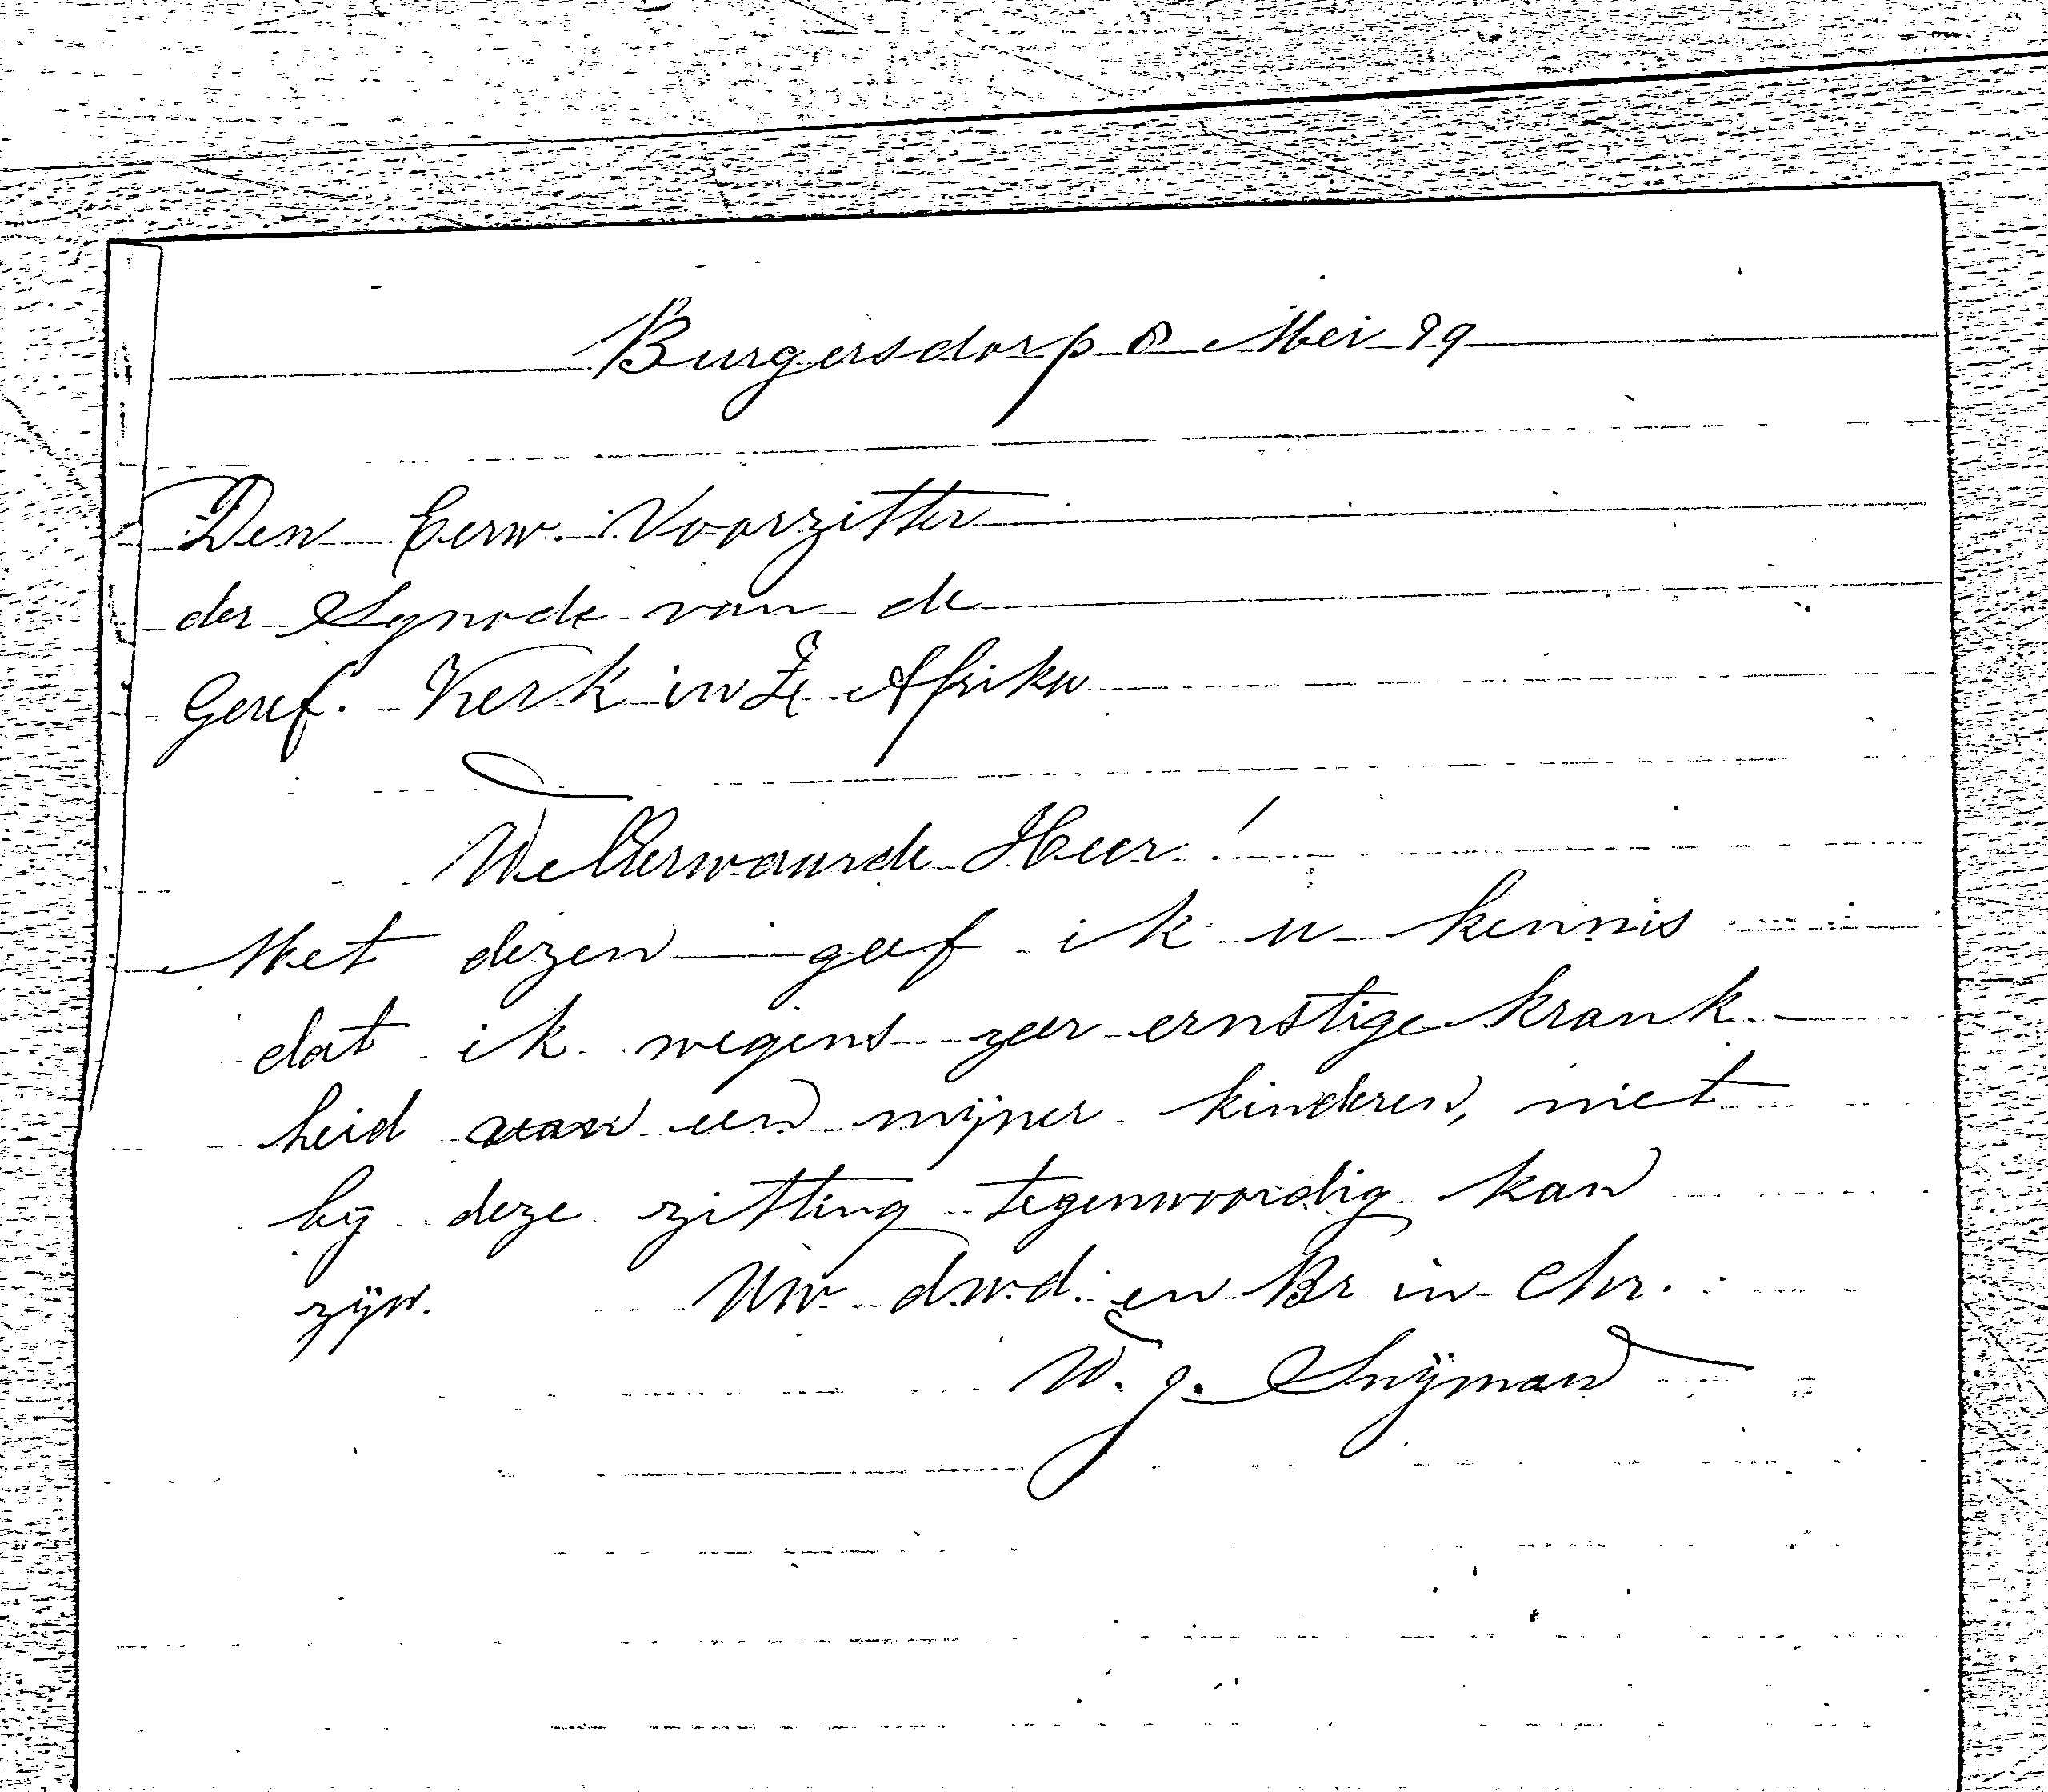 Burgersdorp 8 Mei 99
Den Eerw. Voorzitter
der Synode van de
Geref. Kerk in Z. Afrika
WelEerwaarde Heer!
Met dezen geef ik u kennis
dat ik wegens zeer ernstige krank-
heid van een mijner kinderen, niet
bij deze zitting tegenwoordig kan
zijn. Uw dw.d. en Br in Chr.
W. J. Snijman